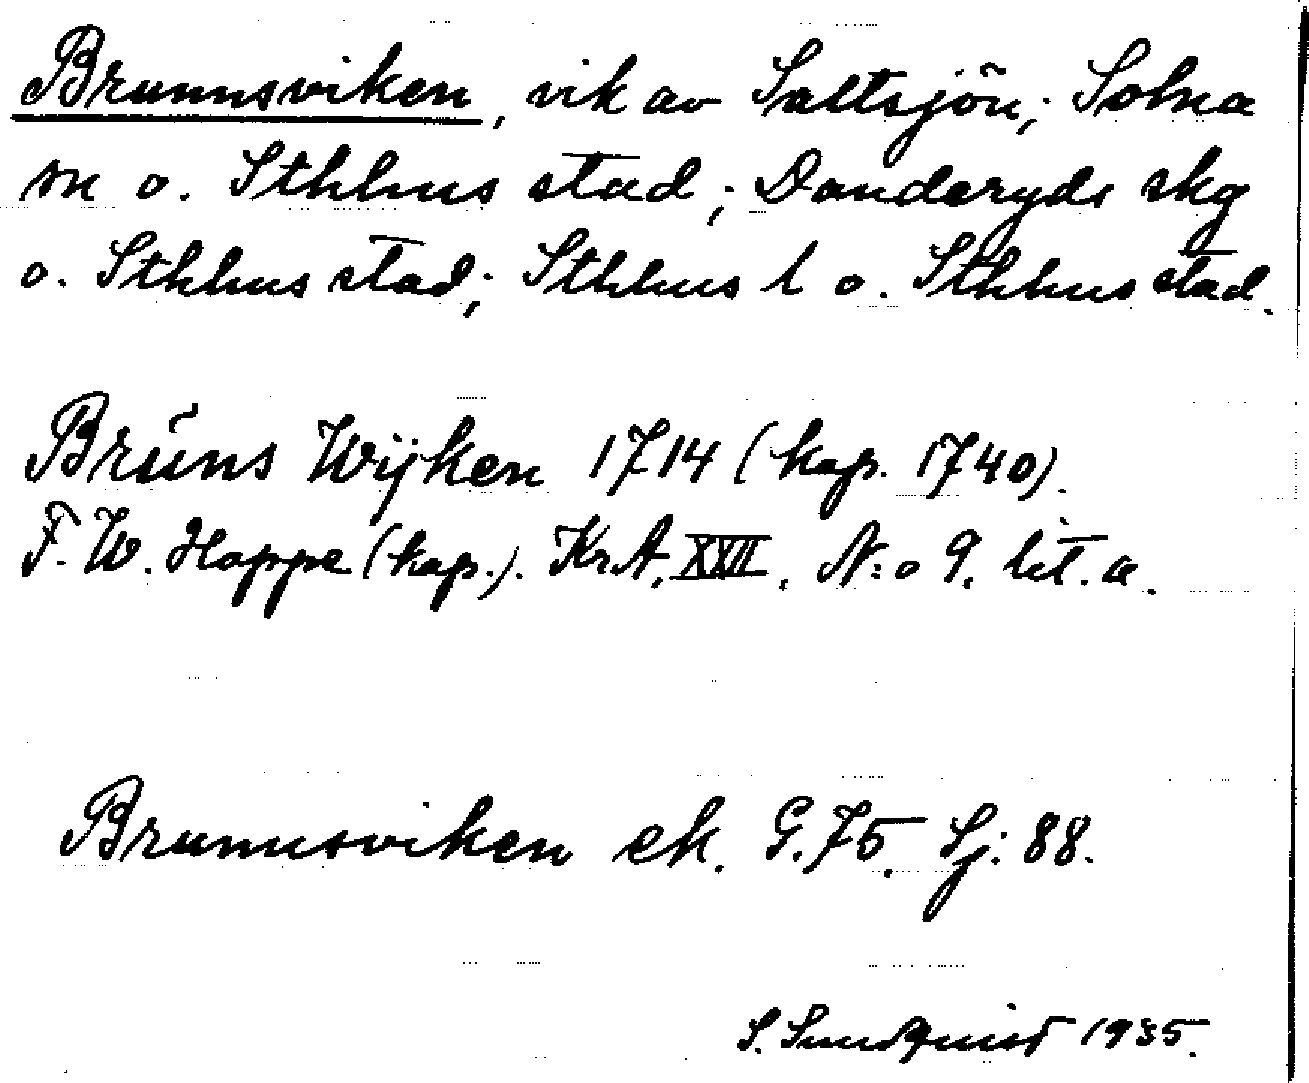 Brunnsviken, vik av Saltsjön; Solna
sn o. Sthlms stad; Danderyds skg
o. Sthlms stad; Sthlms l o. Sthlms stad.
Brūns Wijken 1714 (kop. 1740).
F. W. Hoppe (kop.). KrA. XXII. N:o 9. lit. a.
Brunnsviken ek. G. 75. Sj: 88.
S. Sundquist 1935.